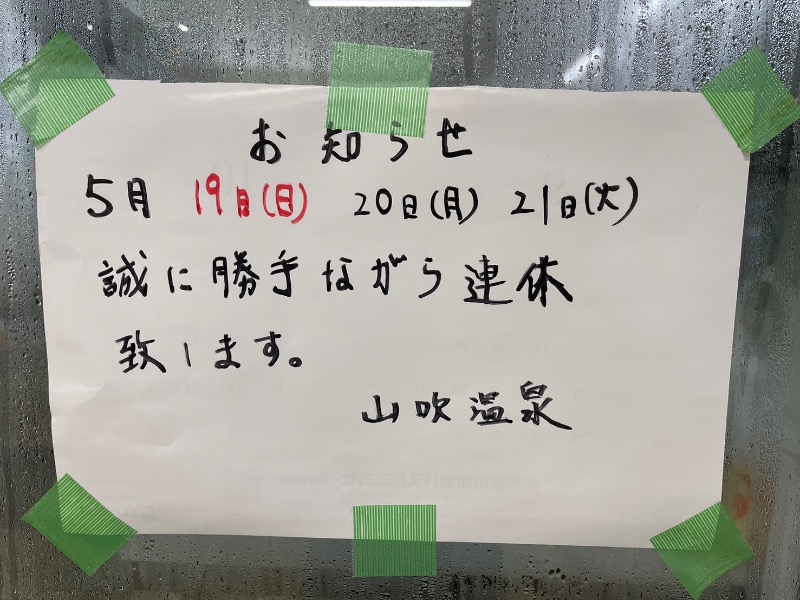 お知らせ
5月 19日(日) 20日(月) 21日(火)
誠に勝手ながら連休
致します。
山吹温泉